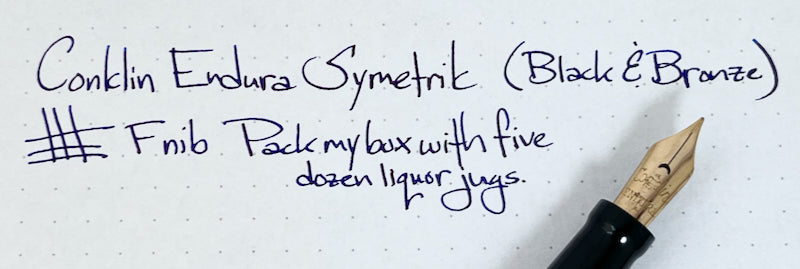 Conklin Endura Symetrik (Black & Bronze)
F nib Pack my box with five
dozen liquor jugs.